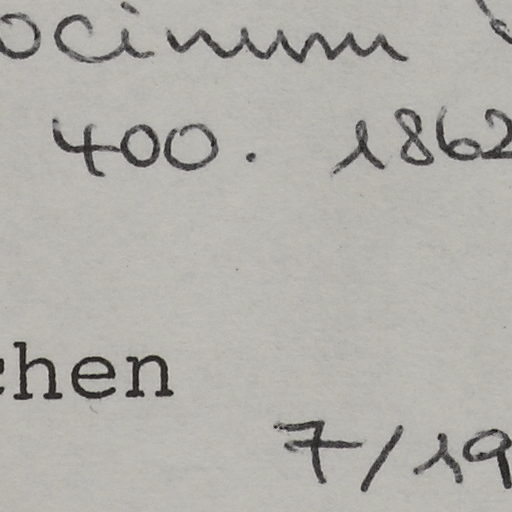 ocinum
400. 1862
chen
7/19